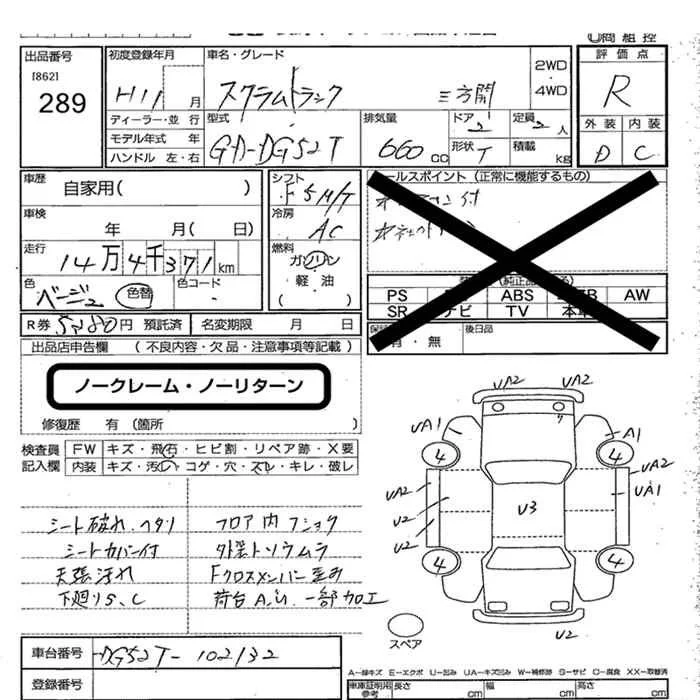 出品番号
[862]
289
初度登録年月
H11 月
ディーラー・並 行
モデル年式 年
ハンドル 左・右
車名・グレード
スクラムトラック 三方開
2WD
4WD
型式
GD-DG52T
排気量
660 cc
ドア
2
定員
2 人
形状
T
積載
kg
評価点
R
外装 内装
D C
車歴
自家用( )
車検
年 月( 日)
走行
14万4千371km
色
ベージュ
色替
色コード
-
シフト
F5M/T
冷房
AC
燃料
ガソリン
軽油
( )
セールスポイント(正常に機能するもの)
PS ABS AW
SR ナビ TV
有・無
後日品
R券 5280円 預託済 名変期限 月 日
出品店申告欄 (不良内容・欠品・注意事項等記載)
ノークレーム・ノーリターン
修復歴 有(箇所 )
検査員
記入欄
FW キズ・飛石・ヒビ割・リペア跡・X要
内装 キズ・汚レ・コゲ・穴・スレ・キレ・破レ
シート破れ、ヘタリ
シートカバー付
天張汚れ
下廻りS、C
フロア内フショク
外装トソウムラ
Fクロスメンバー歪み
荷台A、U、一部加工
UA2 UA2
UA1 ワ A1
4 4
UA2 UA2
UA1
U2 U3
U2
4 4
U2
スペア
車台番号
DG52T-102132
登録番号
A-線キズ E-エクボ U-凹み UA-キズ凹み W-補修跡 S-サビ C-腐食 XX-交換済
車庫証明用
参考
長さ cm
幅 cm
高さ cm